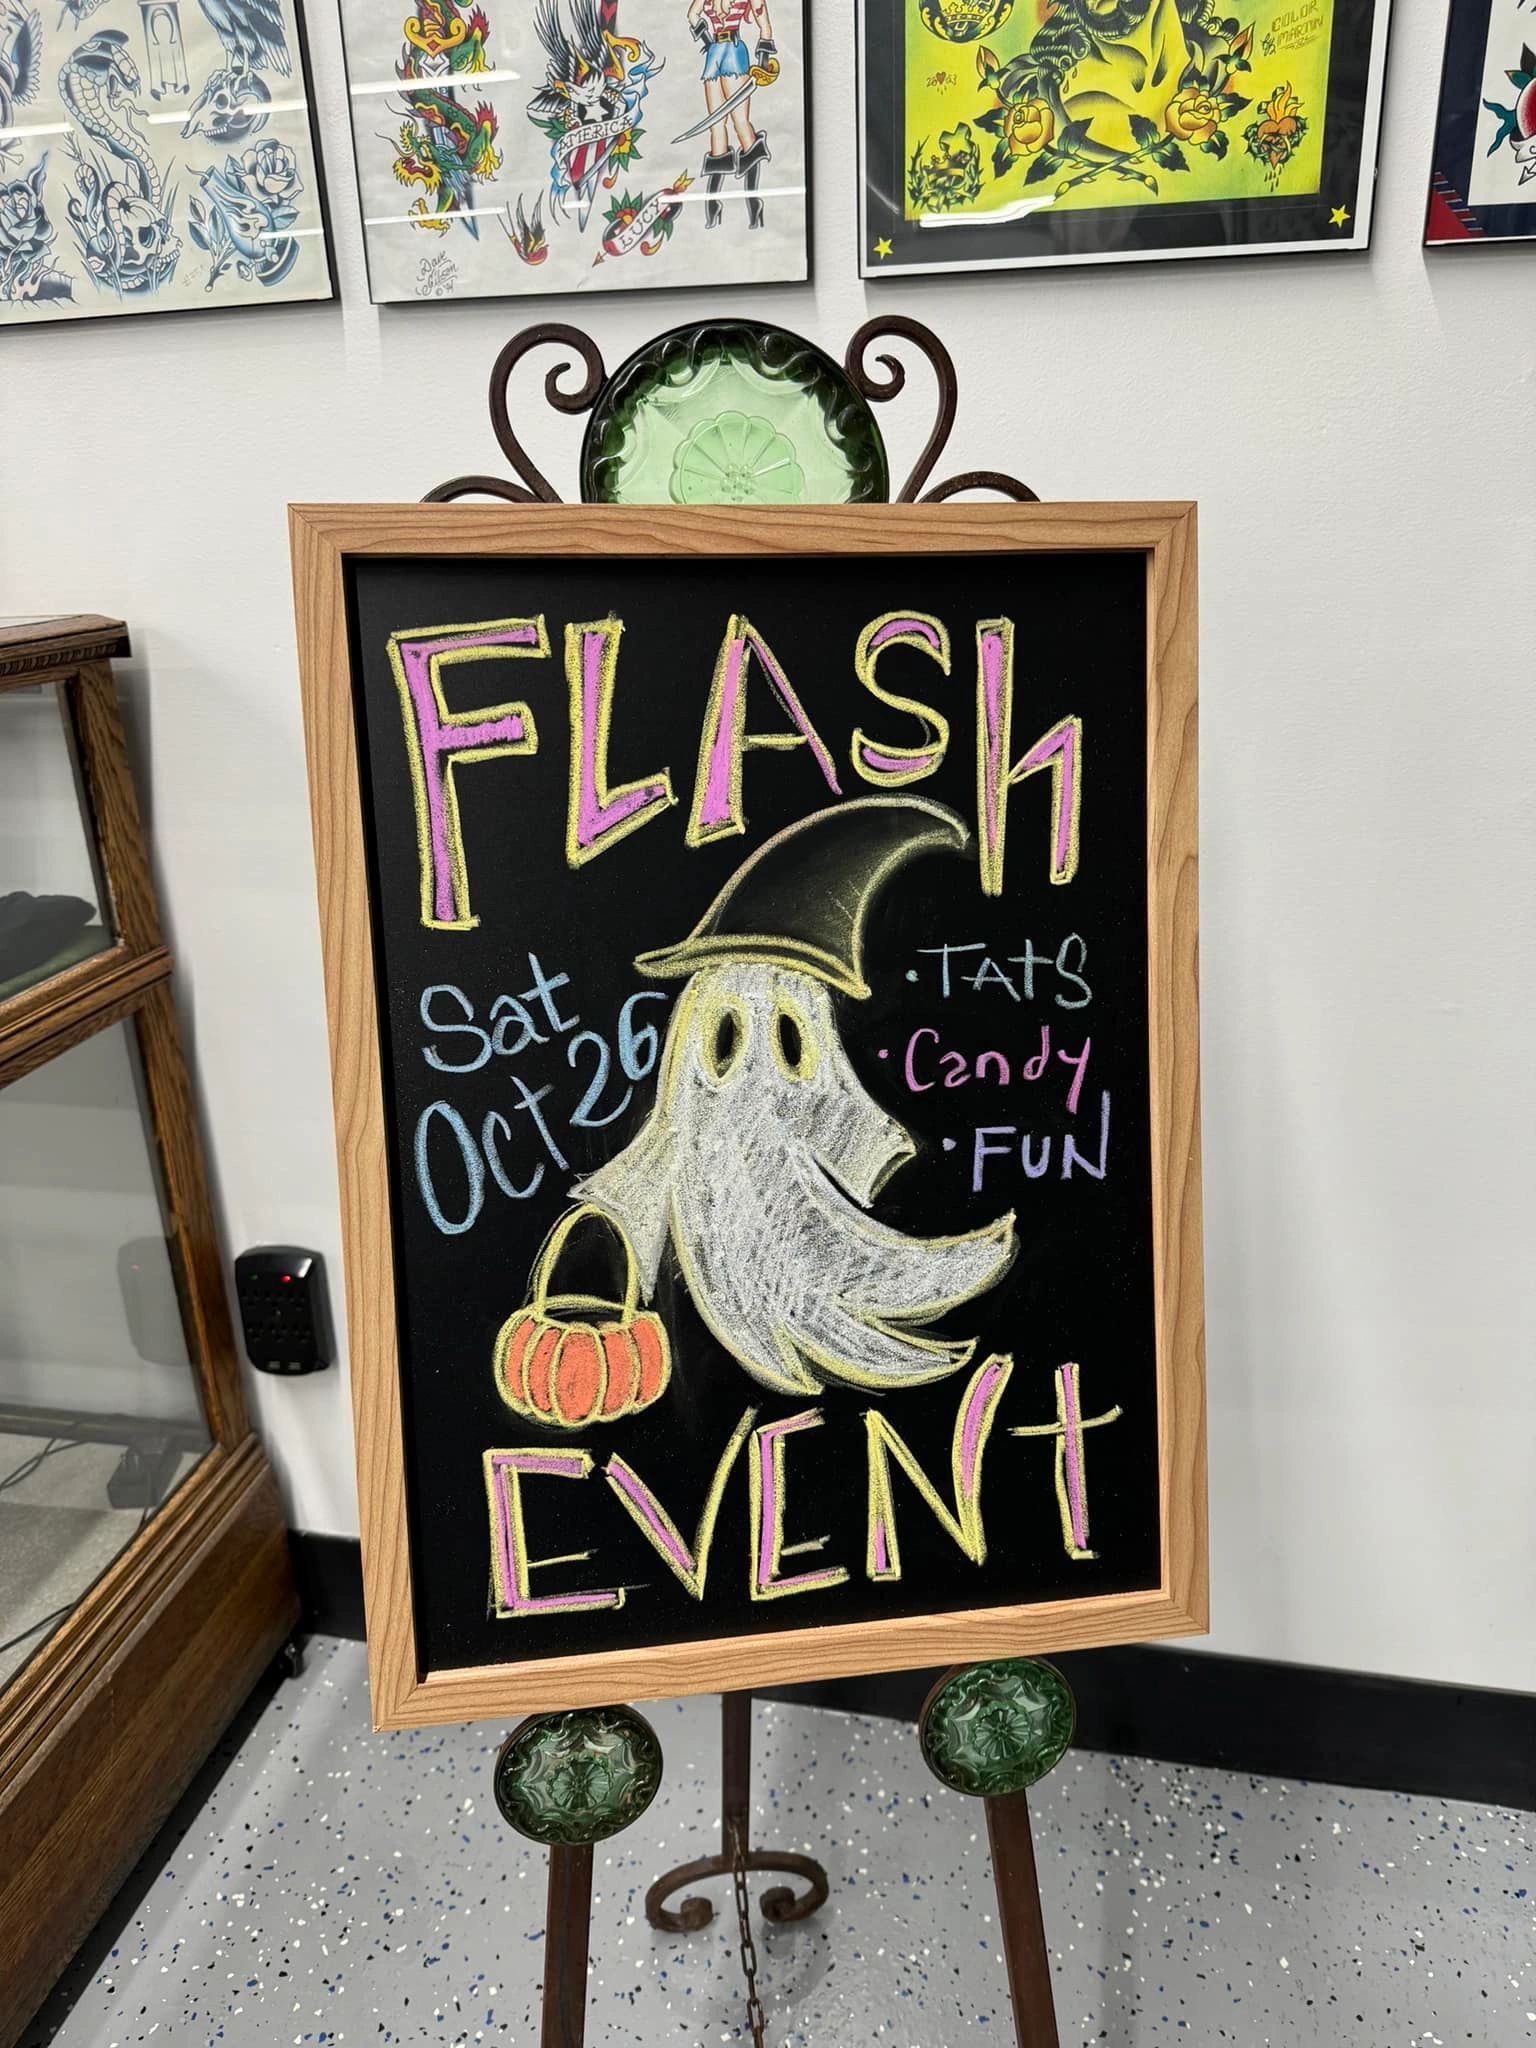 AMERICA
LUCY
Dave
Gibson
© '91
COLOR
MARTIN
FLASh
Sat
Oct 26
• TAtS
• Candy
• FUN
EVENt